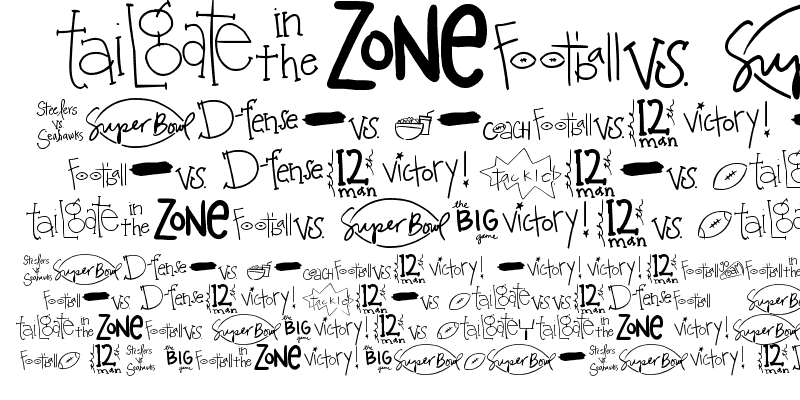 tailgate in the ZONE Football VS. Su
Steelers vs. Seahawks Super Bowl D-fense VS. COACH Football VS 12 man victory!
Football VS. D-fense 12 man victory! tackle 12 man VS. ta
tailgate in the ZONE Football VS. Super Bowl the BIG game victory! 12 man VS. tailgat
Steelers vs. Seahawks Super Bowl D-fense VS COACH Football VS 12 man victory! victory! victory! 12 man Football Football in the
Football VS. D-fense 12 man victory! tackle 12 man VS tailgate VS VS. 12 man D-fense Football Super Bowl
tailgate in the ZONE Football VS Super Bowl the BIG game victory! 12 man VS. tailgate Y tailgate in the ZONE victory! Super Bowl
Football 12 man the BIG game Football in the ZONE victory! the BIG game Super Bowl Super Bowl Steelers vs. Seahawks Super Bowl victory! 12 man